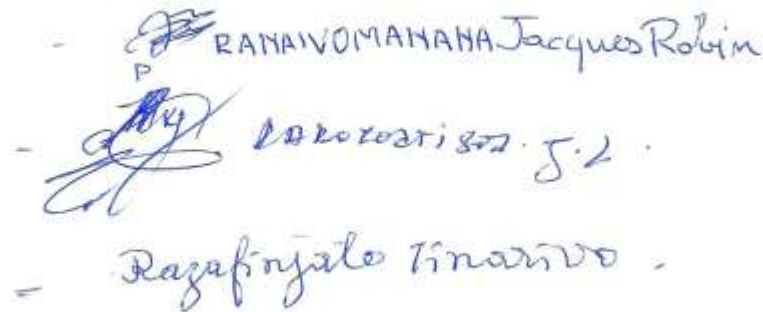 - RANAIVOMANANA Jacques Robin
P
- RAKOTOARISOA. J.L.
- Razafinjato Tinarivo.